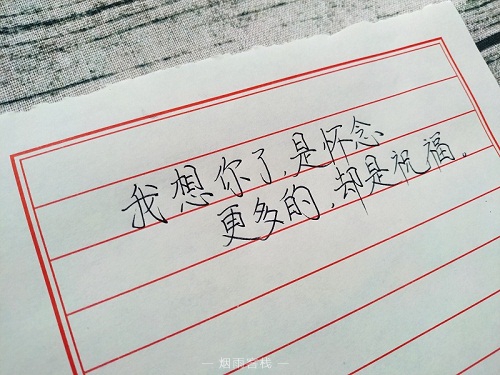 我想你了,是怀念
更多的,却是祝福。
— 烟雨客栈 —